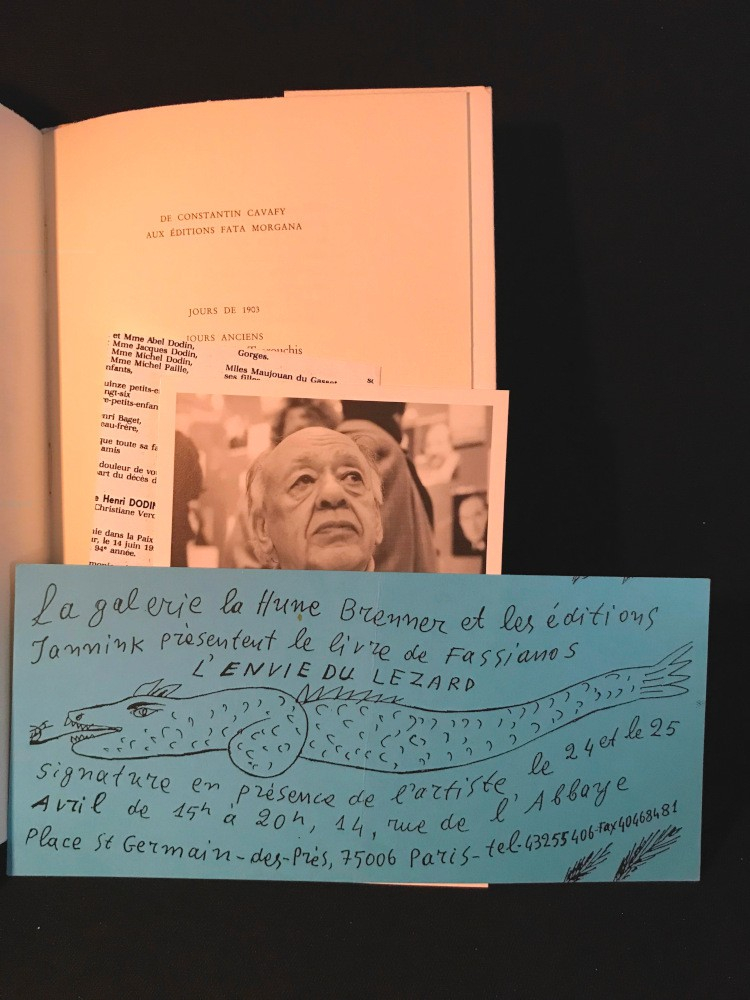 DE CONSTANTIN CAVAFY
AUX ÉDITIONS FATA MORGANA
JOURS DE 1903
JOURS ANCIENS
et Mme Abel Dodin,
Mme Jacques Dodin,
Mme Michel Dodin,
Mme Michel Paille,
nfants,
uinze petits-e
ngt-six
e-petits-enfan
nri Baget,
eau-frère,
que toute sa fa
amis
douleur de vo
art du décès d
e Henri DODIN
Christiane Ver
ie dans la Paix
ur, le 14 juin 19
94e année.
Gorges.
Mlles Maujouan du Gasset
ses filles
La galerie la Hune Brenner et les éditions
Jannink présentent le livre de Fassianos
L'ENVIE DU LEZARD
signature en présence de l'artiste le 24 et le 25
Avril de 15h à 20h, 14, rue de l'Abbaye
Place St Germain-des-Près, 75006 Paris-tel-43255406-Fax40468481